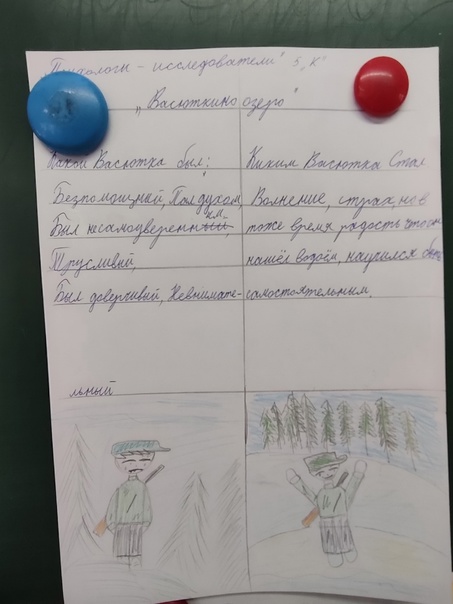 „Психологи - исследователи" 5 „К"
„Васюткино озеро"
Какой Васютка был:
Безпомощный, Пал духом,
Был несамоуверенным,
Трусливый,
Был доверчивый, Невнимате-
льный
Каким Васютка Стал
Волнение, страх, но в
тоже время радость что он
нашёл водоём, научился быть
самостоятельным.